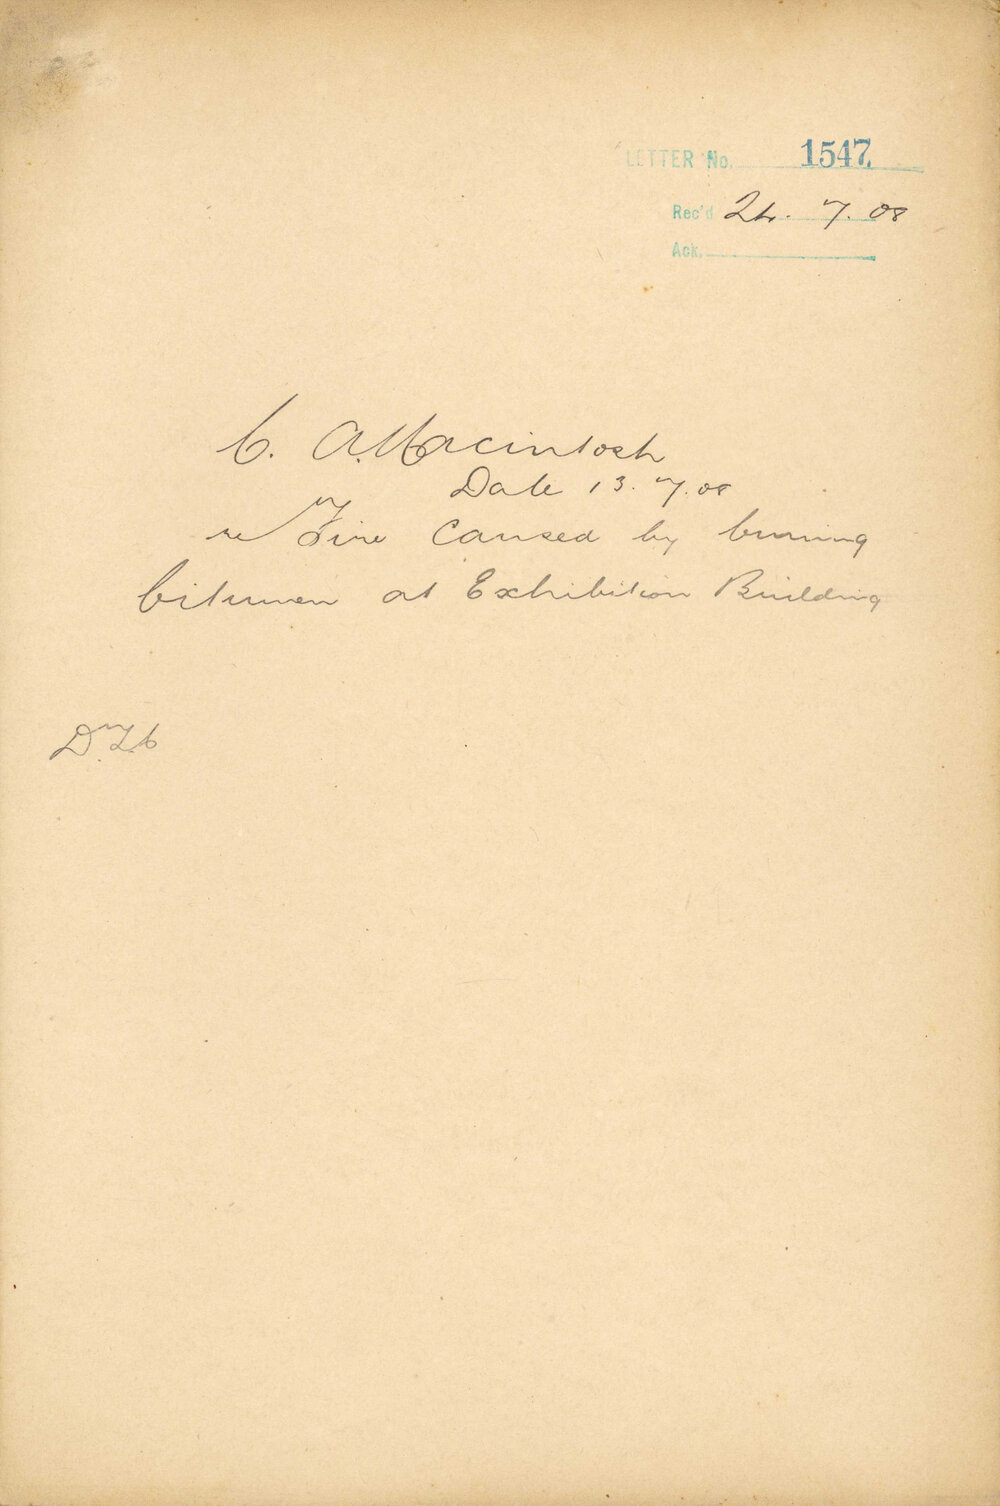 LETTER No. 1547
Rec'd 24. 7. 08
Ack.
C. A. Macintosh
Date 13. 7. 08
re Fire caused by burning
bitumen at Exhibition Building